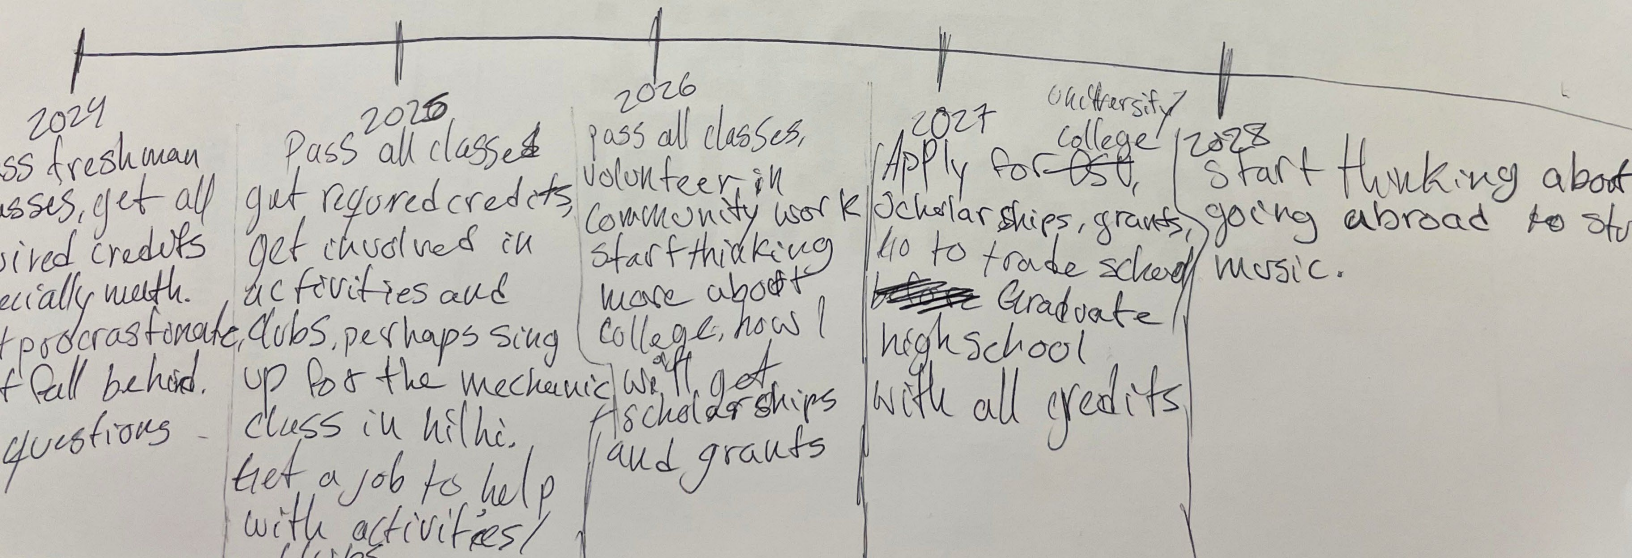 2024
ss freshman
asses, get all
uired credits
ecially math.
t procrastonate,
t fall behind.
questions
2025
Pass all classes
gut requred credits,
get involved in
activities and
clubs, perhaps sing
up for the mechanic
class in hilhi.
Get a job to help
with activities/
clubs
2026
pass all classes,
volunteer, in
community work
start thinking
more about
college, how I
will get
scholarships
and grants
2027
University/
college
Apply for OSU,
Scholarships, grants,
Go to trade school
Graduate
high school
with all credits
2028
Start thinking about
going abroad to stu
music.